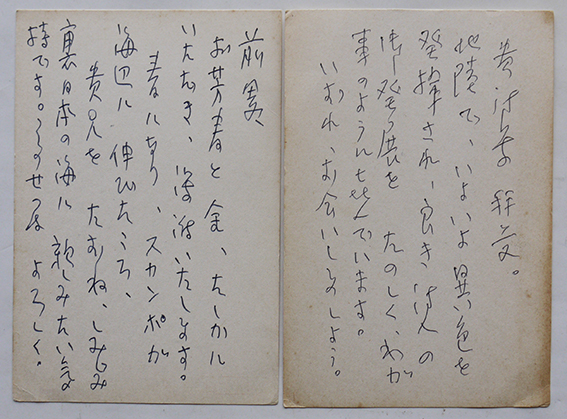 貴詩集 拝受。
北陸で、いよいよ異色を
発揮され、良き詩人の
御発展を たのしく、わが
事のように喜んでいます。
いずれ、お会いしましょう。
前略
お芳書と金、たしかに
いただき、深謝いたします。
春になり、スカンポが
海辺に 伸びたころ、
貴兄を たずね、しみじみ
裏日本の海に 親しみたい気
持です。そのせつは よろしく。